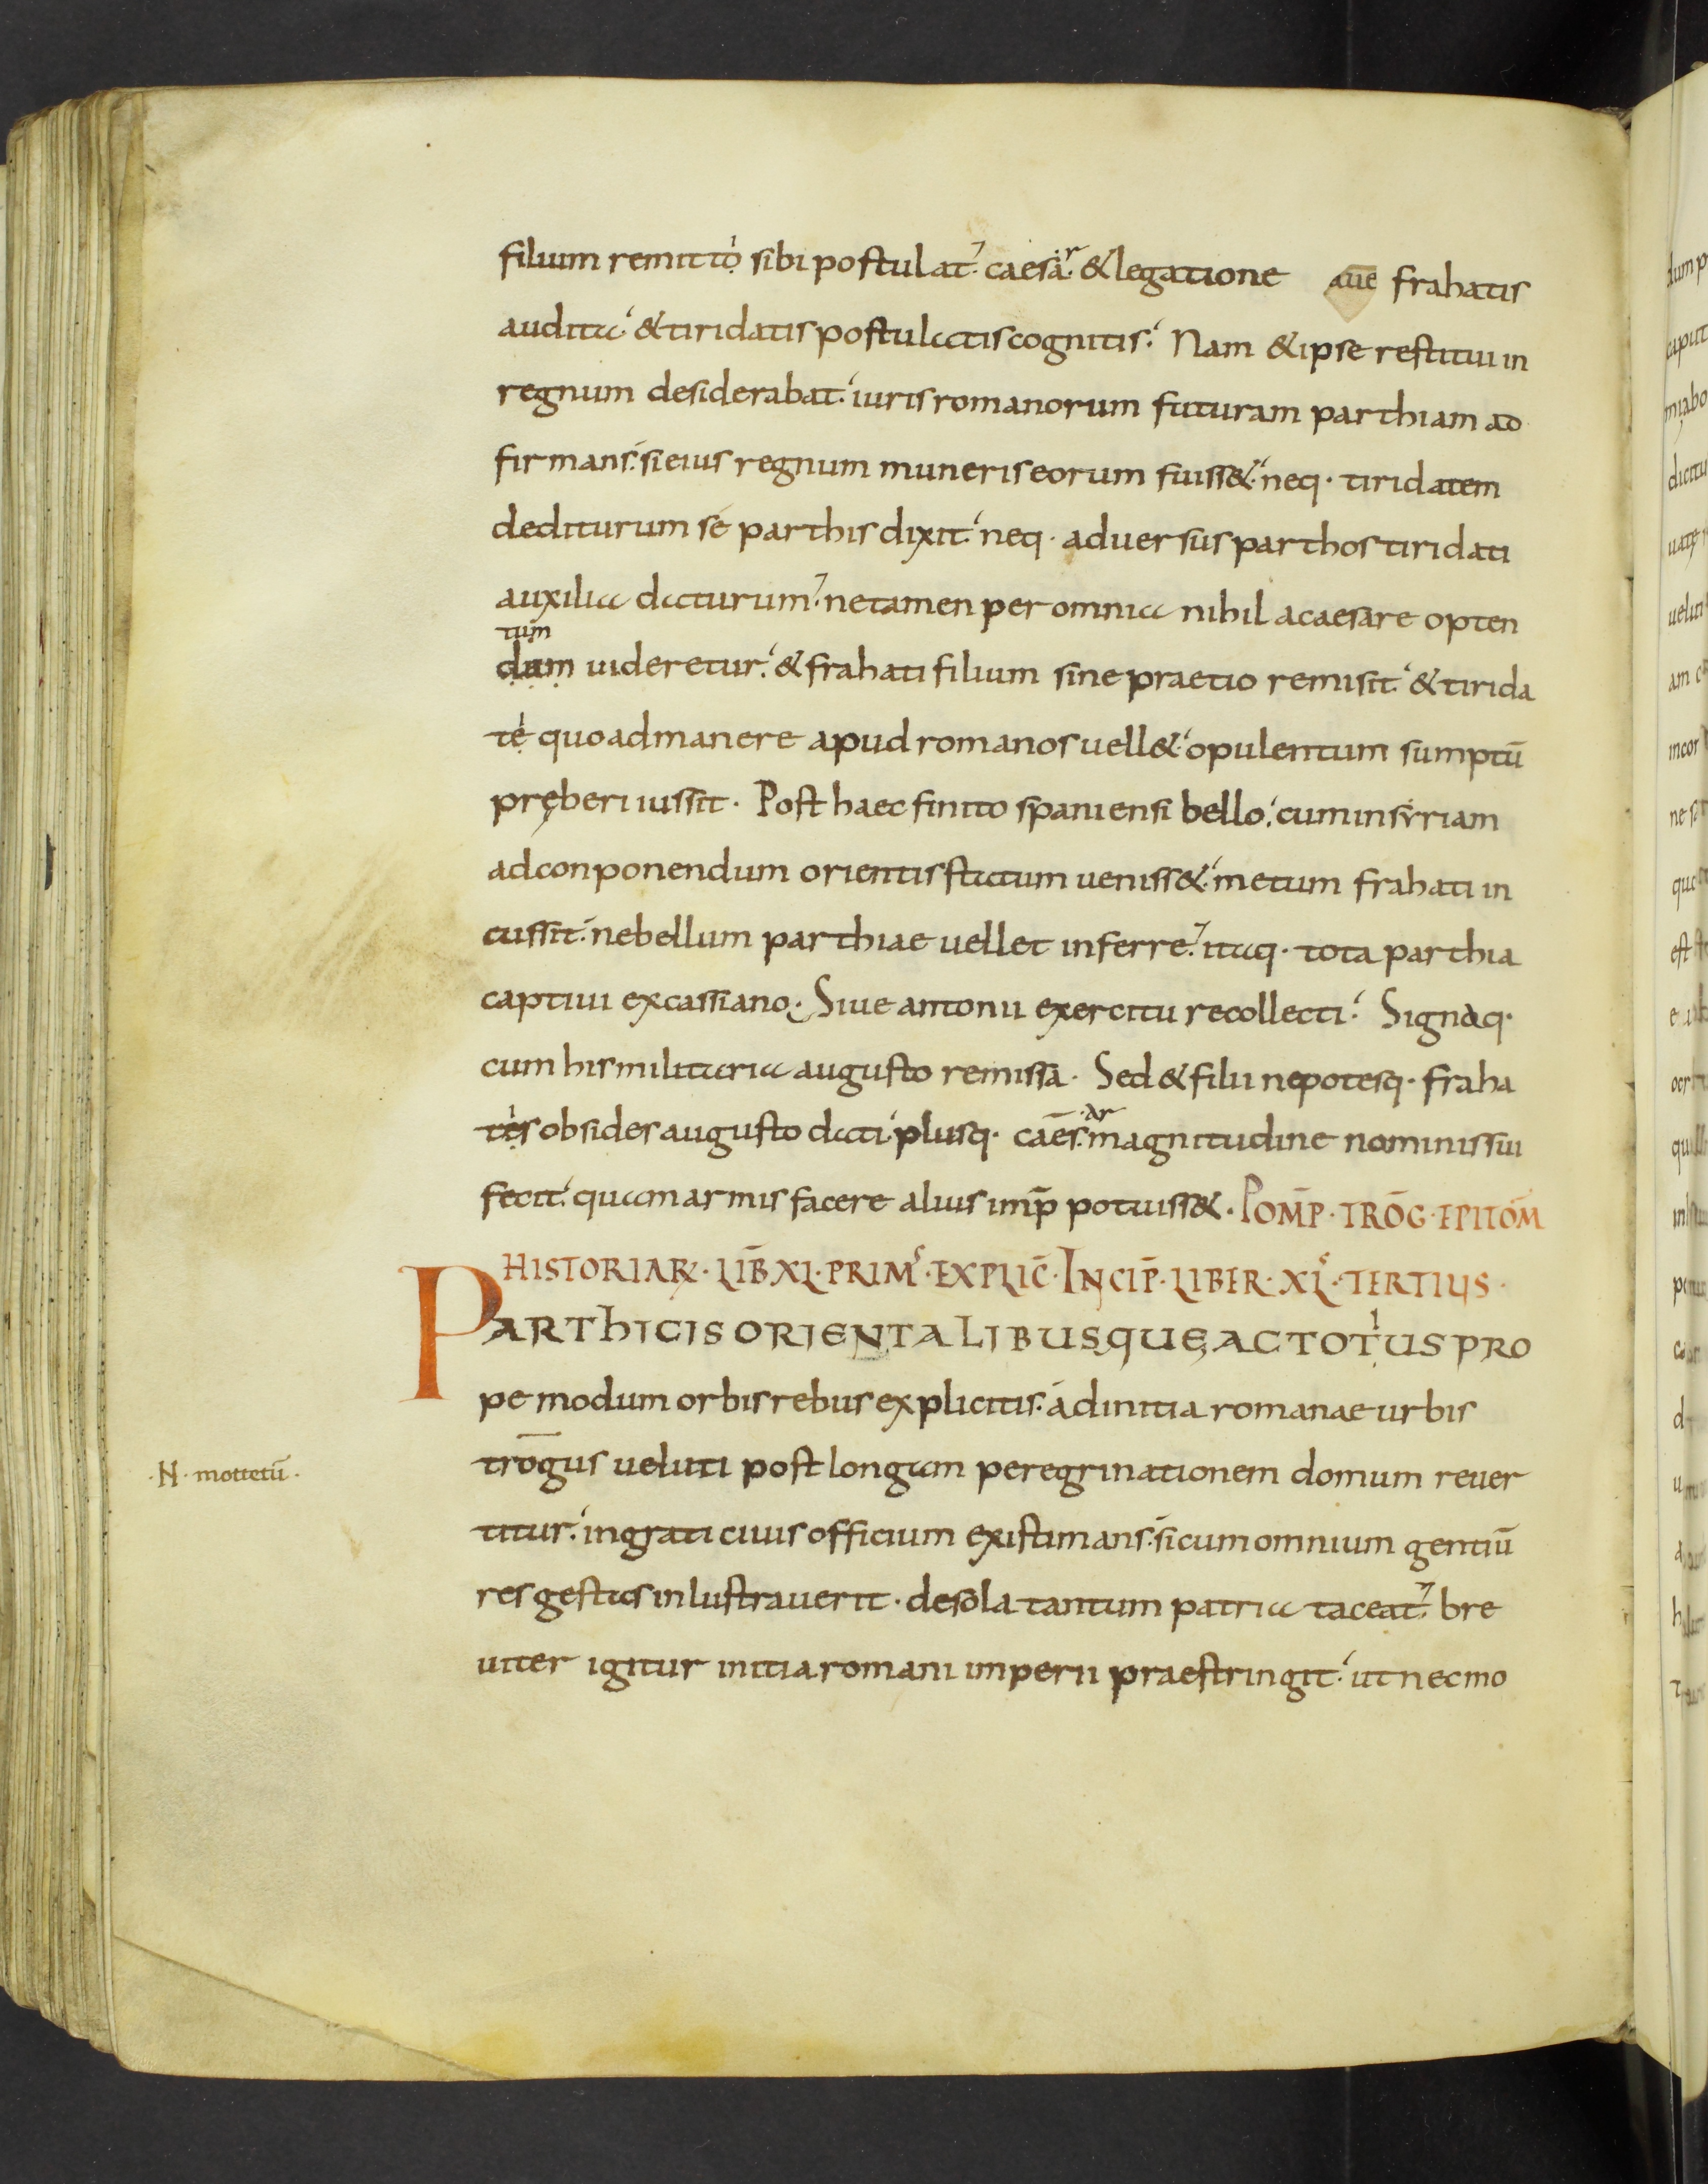 filium remitto sibi postulat. caesar. & legatione frahatis
audita. & tiridatis postulatis cognitis. Nam & ipse restitui in
regnum desiderabat. iuris romanorum futuram parthiam ad
firmans. si eius regnum muneris eorum fuiss&. neq· tiridatem
dediturum se parthis dixit. neq· aduersus parthos tiridati
auxilia daturum. ne tamen per omnia nihil a caesare opten
tum
dum uideretur. & frahati filium sine praetio remisit. & tirida
te quoad manere apud romanos uell&. opulentum sumptū
pręberi iussit. Post haec finito spaniensi bello. cum in syriam
ad conponendum orientis statum ueniss&. metum frahati in
cussit. ne bellum parthiae uellet inferre. itaq· tota parthia
captiui ex cassiano. Siue antonii exercitu recollecti. Signaq·
cum his militaria augusto remissa. Sed & filii nepotesq· fraha
tes obsides augusto dati. plusq· caēs.ar magnitudine nominis sui
fecit. quam armis facere alius imp̄ potuiss&. POMP̄· TROḠ· EPITOM̄
HISTORIAR̄· LIB̄ XL· PRIMꝰ· EXPLIC̄· INCIP̄· LIBER· XL· TERTIUS·
PARTHICIS ORIENTALIBUSQUE, AC TOTIUS PRO
pe modum orbis rebus explicitis. ad initia romanae urbis
·N· mottetū·
trogus ueluti post longam peregrinationem domum reuer
titur. ingrati ciuis officium existimans. si cum omnium gentiū
res gestas inlustrauerit. de sola tantum patria taceat. bre
uiter igitur initia romani imperii praestringit. ut nec mo